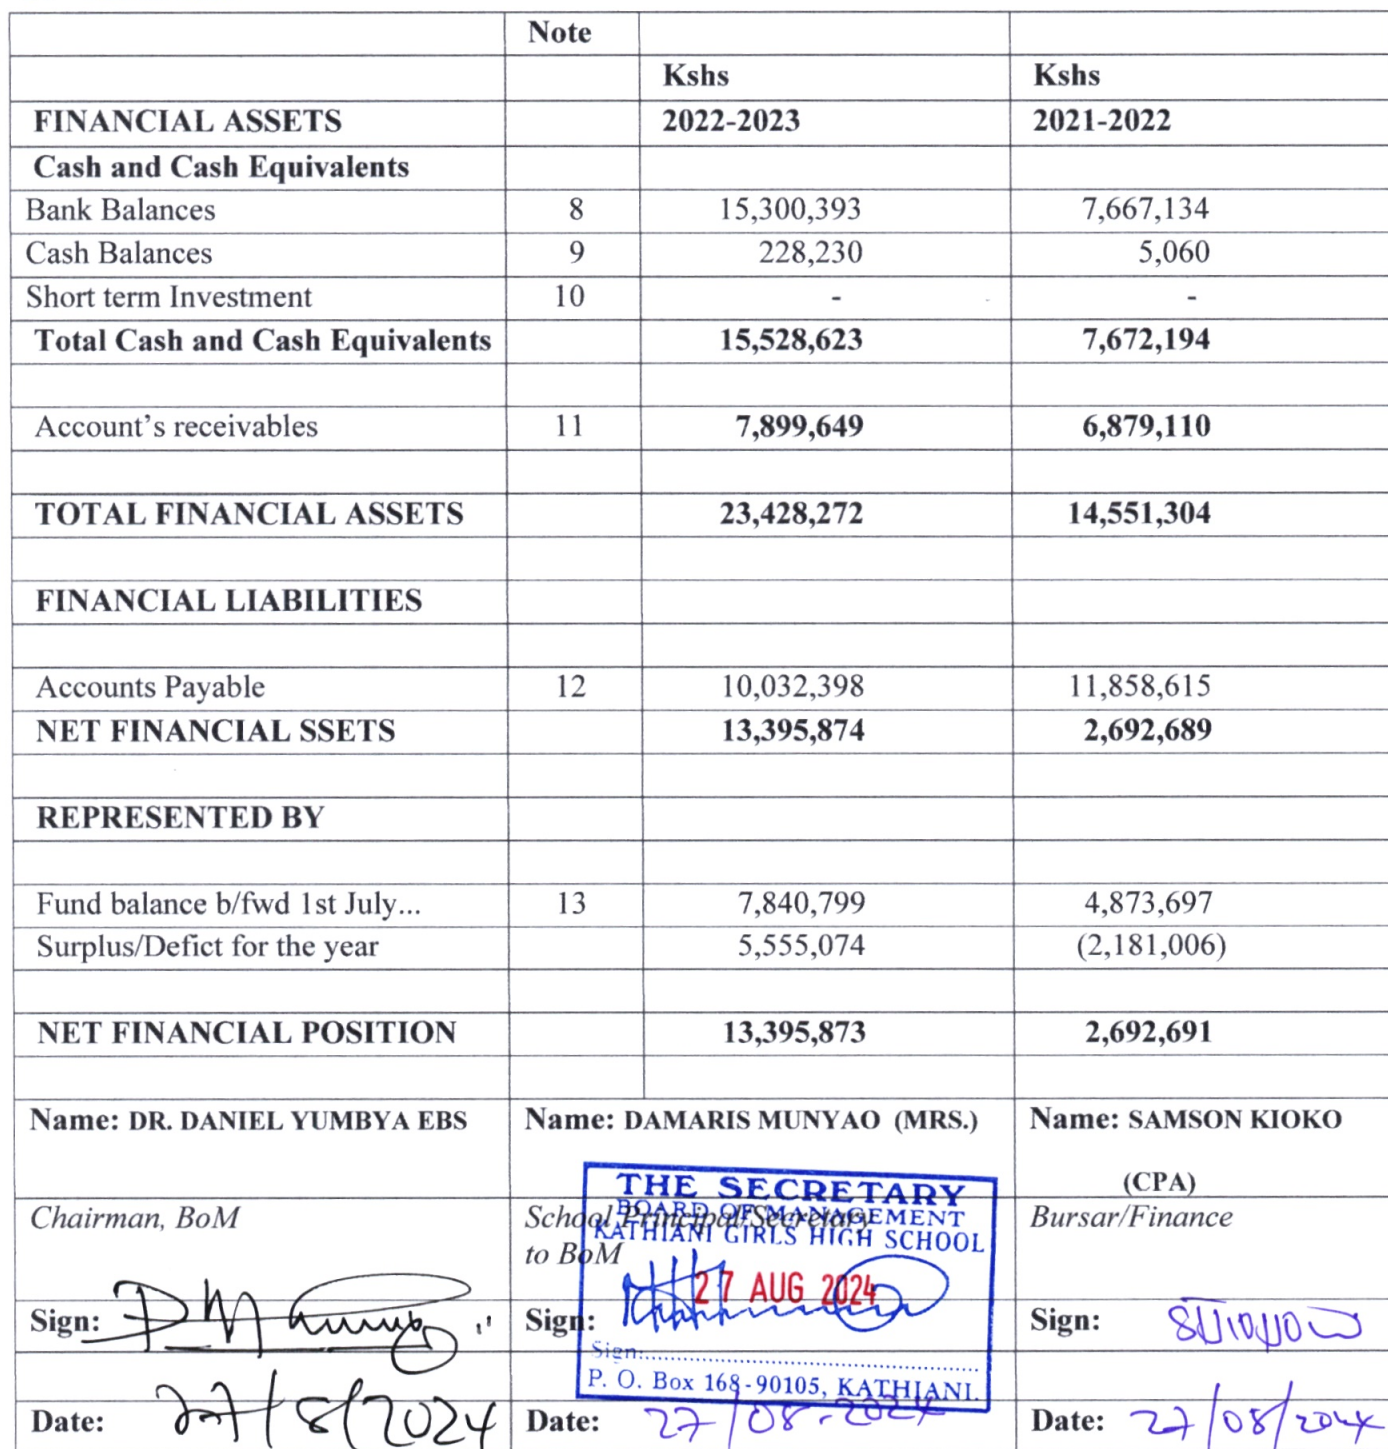 Note
Kshs Kshs
FINANCIAL ASSETS 2022-2023 2021-2022
Cash and Cash Equivalents
Bank Balances 8 15,300,393 7,667,134
Cash Balances 9 228,230 5,060
Short term Investment 10 - -
Total Cash and Cash Equivalents 15,528,623 7,672,194
Account’s receivables 11 7,899,649 6,879,110
TOTAL FINANCIAL ASSETS 23,428,272 14,551,304
FINANCIAL LIABILITIES
Accounts Payable 12 10,032,398 11,858,615
NET FINANCIAL SSETS 13,395,874 2,692,689
REPRESENTED BY
Fund balance b/fwd 1st July... 13 7,840,799 4,873,697
Surplus/Defict for the year 5,555,074 (2,181,006)
NET FINANCIAL POSITION 13,395,873 2,692,691
Name: DR. DANIEL YUMBYA EBS Name: DAMARIS MUNYAO (MRS.) Name: SAMSON KIOKO
(CPA)
Chairman, BoM School Principal/Secretary Bursar/Finance
to BoM
THE SECRETARY
BOARD OF MANAGEMENT
KATHIANI GIRLS HIGH SCHOOL
27 AUG 2024
Sign: Sign: Sign:
Sign:
P. O. Box 168-90105, KATHIANI.
Date: 27/8/2024 Date: 27/08-2024 Date: 27/08/2024